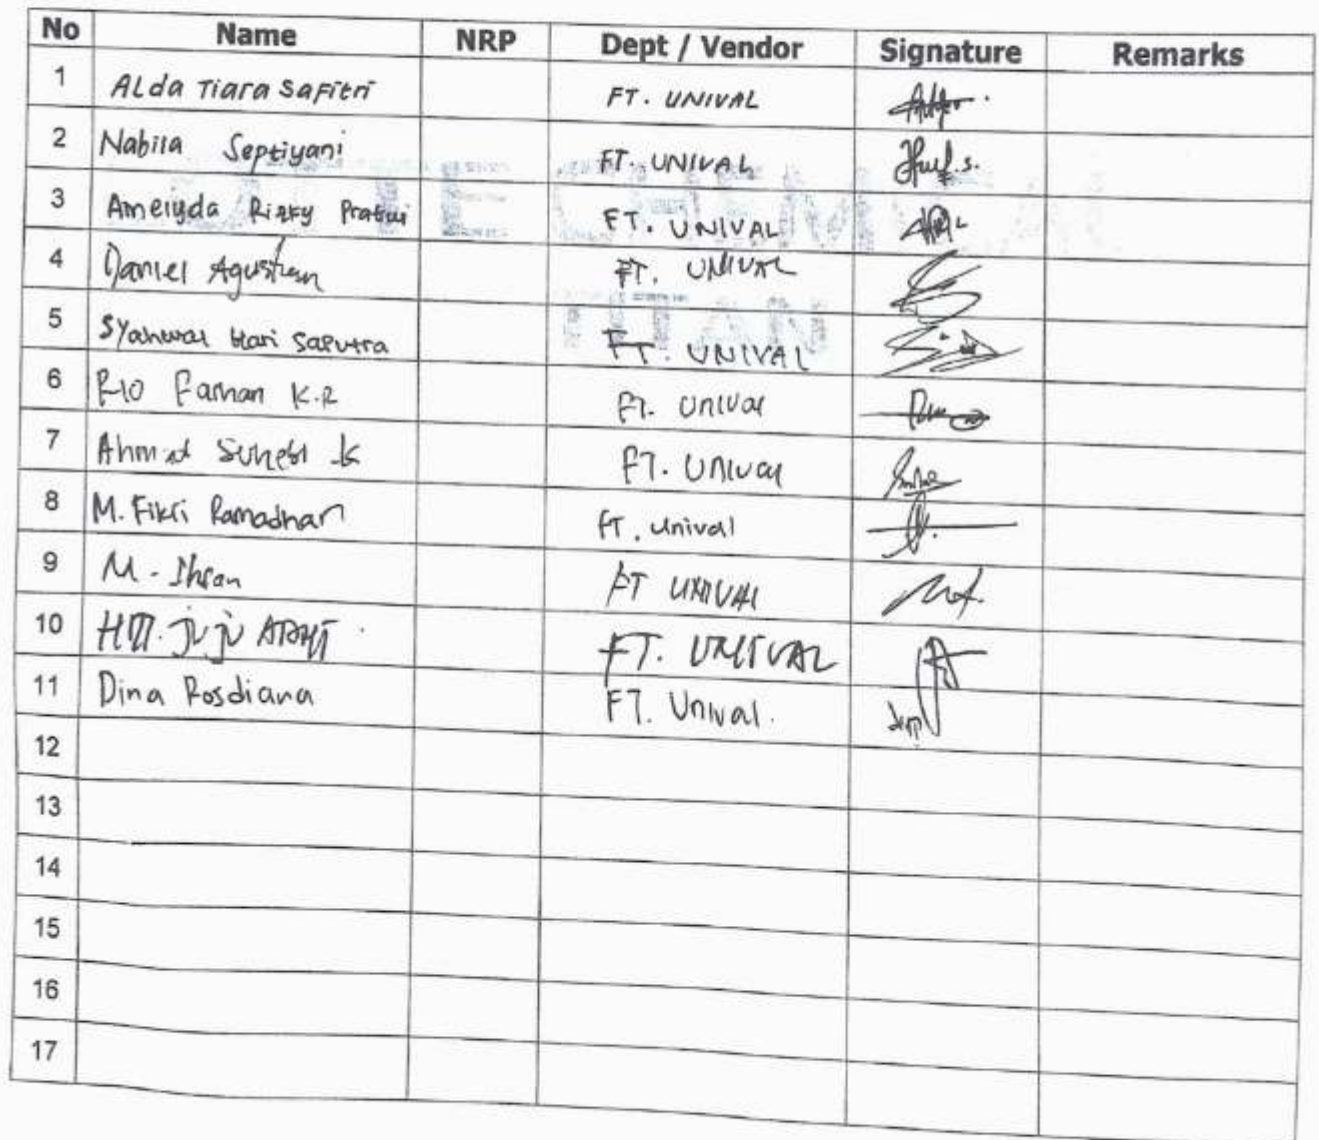 No Name NRP Dept / Vendor Signature Remarks
1 Alda Tiara Safitri FT. UNIVAL
2 Nabila Septiyani FT. UNIVAL
3 Ameiyda Rizky Pratiwi FT. UNIVAL
4 Daniel Agustian FT. UNIVAL
5 Syahwal Hari Saputra FT. UNIVAL
6 Rio Farhan K.R FT. Unival
7 Ahmad Suhebi K FT. Unival
8 M. Fikri Ramadhan FT. Unival
9 M. Ihsan FT UNIVAL
10 juju FT. UNIVAL
11 Dina Rosdiana FT. Unival.
12
13
14
15
16
17